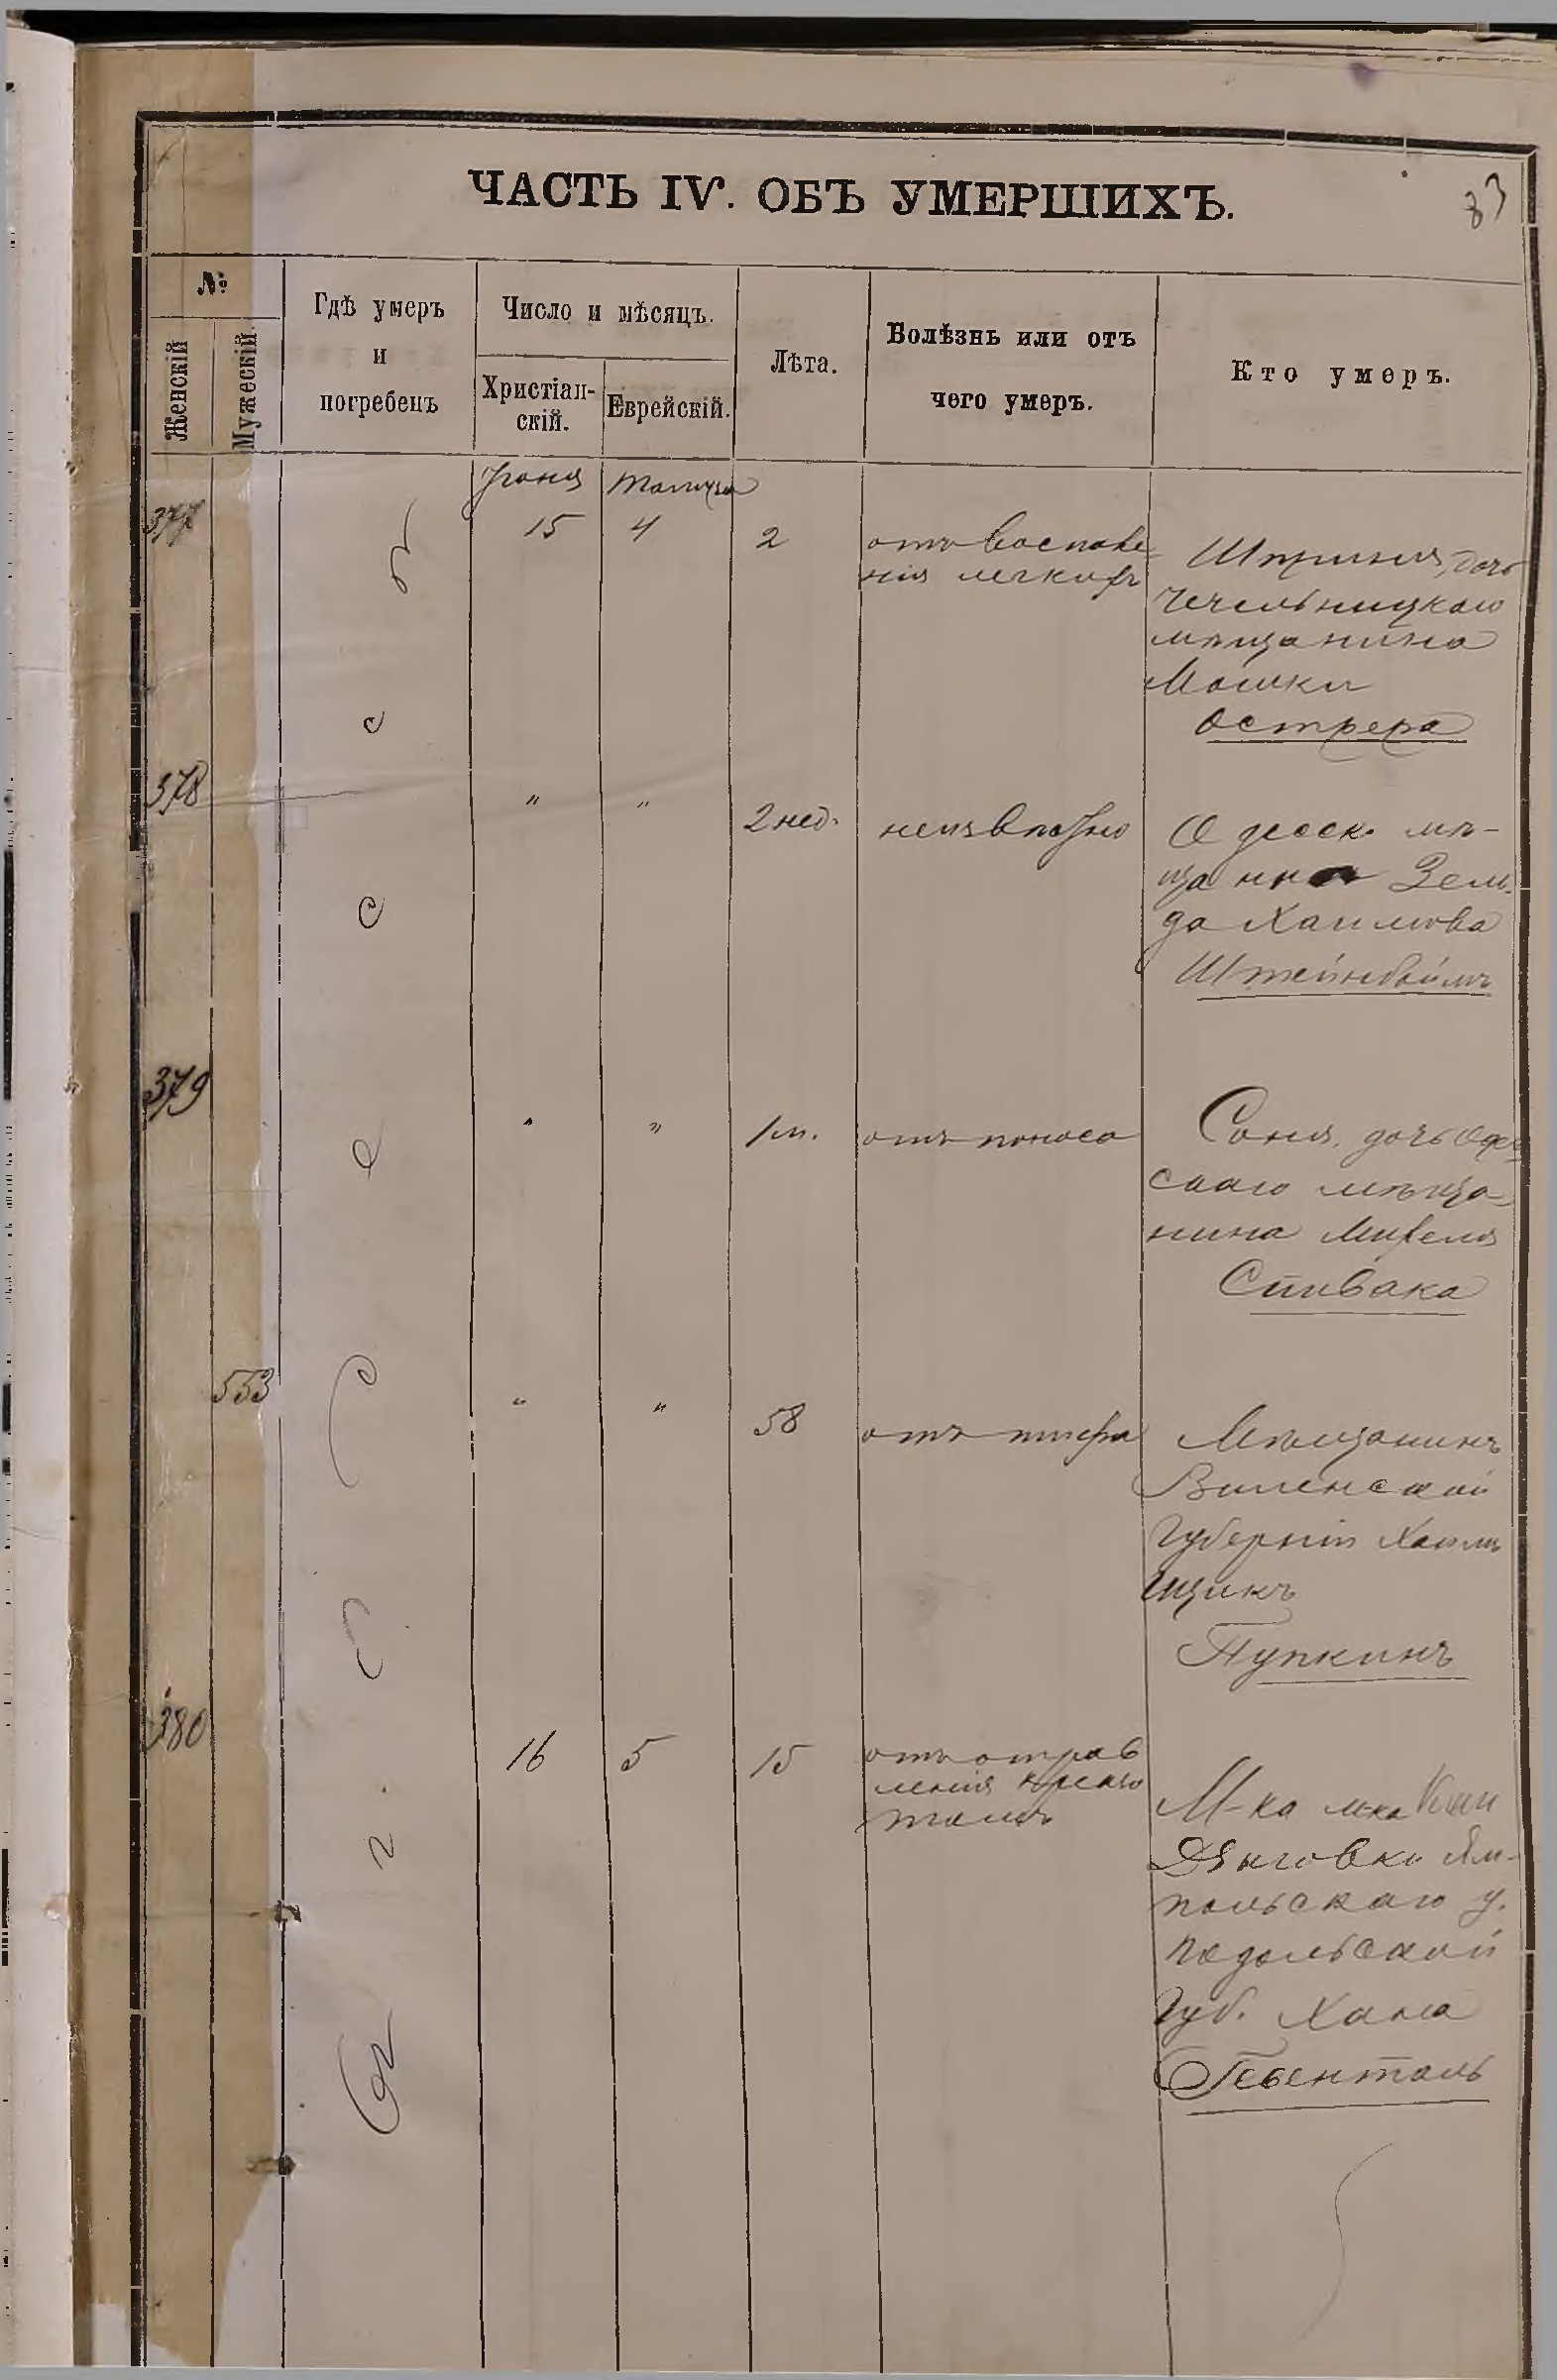 ЧАСТЬ IV. ОБЪ УМЕРШИХЪ.
83
№
Женскій
Мужескій.
Гдѣ умеръ
и
погребенъ
Число и мѣсяцъ.
Христіан-
скій.
Еврейскій.
Лѣта.
Болѣзнь или отъ
чего умеръ.
Кто умеръ.
Іюня
377
15
4
2
отъ воспале
нія легкихъ
дочь
Чечельницкаго
мѣщанина
Мошки
Острера
378
"
"
2 нед.
неизвѣстно
Одесск. мѣ-
Зель
да Хаимова
Штейнбоймъ
379
"
"
1 м.
отъ поноса
Соня, дочь Одес
скаго мѣща
нина
Спивака
553
"
"
58
отъ тифа
Мѣщанинъ
Виленской
Губерніи Хаимъ
Ицикъ
Пупкинъ
380
16
5
15
отъ отрав
ленія
М-ка
Дзыговки Ям-
польскаго у.
Подольской
Губ. Хана